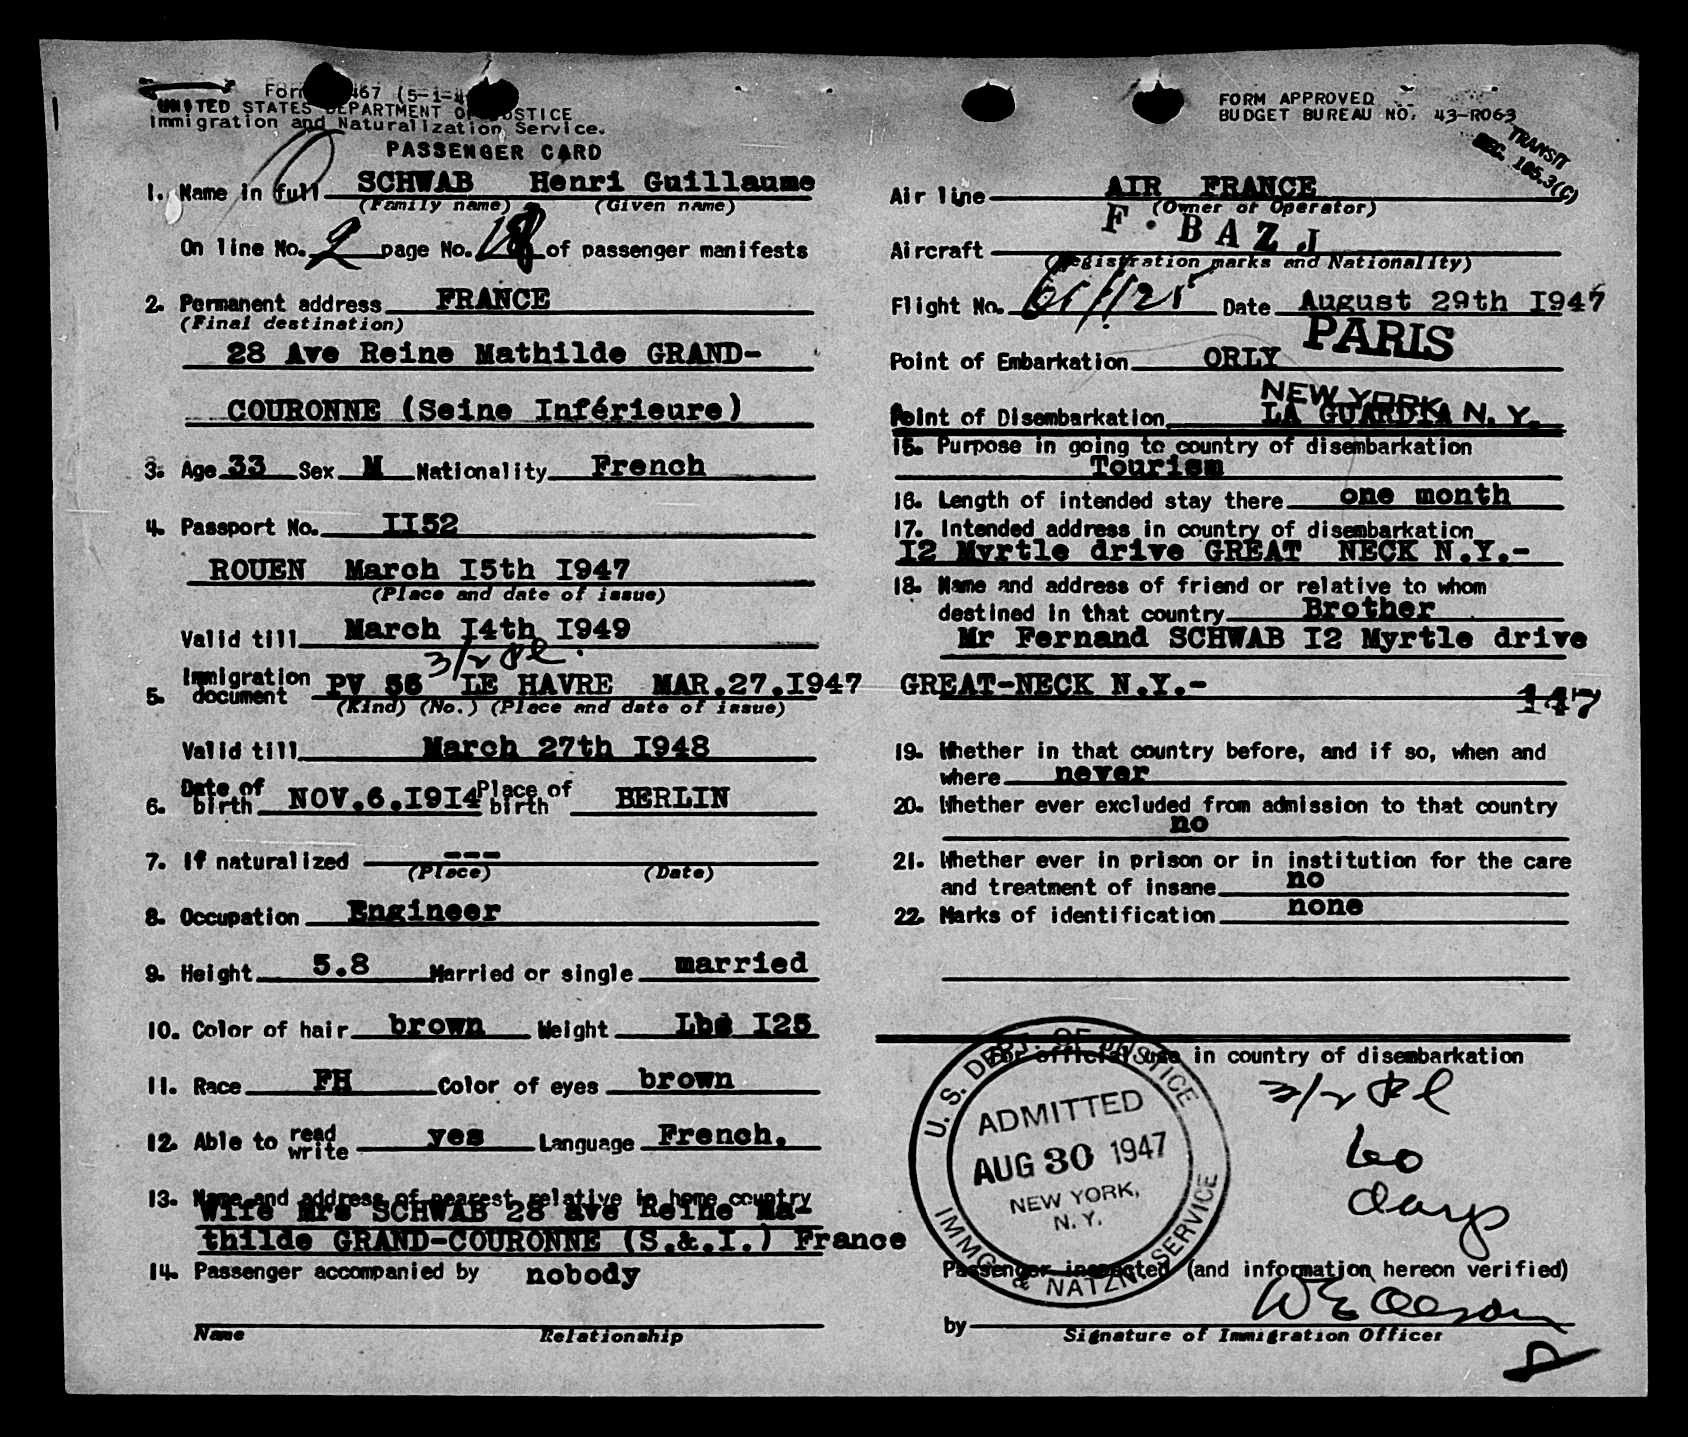 UNITED STATES DEPARTMENT OF JUSTICE
Immigration and Naturalization Service.
PASSENGER CARD
1. Name in full SCHWAB Henri Guillaume
(Family name) (Given name)
On line No. 2 page No. of passenger manifests
2. Permanent address FRANCE
(Final destination)
28 Ave Reine Mathilde GRAND-
COURONNE (Seine Inférieure)
3. Age 33 Sex M Nationality French
4. Passport No. II52
ROUEN March I5th I947
(Place and date of issue)
Valid till March I4th I949
3/2
5. Immigration document PV 56 LE HAVRE MAR.27.I947
(Kind) (No.) (Place and date of issue)
Valid till March 27th I948
6. Date of birth NOV.6.I9I4 Place of birth BERLIN
7. If naturalized ---
(Place) (Date)
8. Occupation Engineer
9. Height 5.8 Married or single married
10. Color of hair brown Weight Lbs I25
11. Race FH Color of eyes brown
12. Able to read write yes Language French.
13. Name and address of nearest relative in home country
Wife Mrs SCHWAB 28 ave Reine Ma-
thilde GRAND-COURONNE (S.&.I.) France
14. Passenger accompanied by nobody
Name Relationship
FORM APPROVED
BUDGET BUREAU NO. 43-R063
TRANSIT
SEC. 165.3(C)
Air line AIR FRANCE
(Owner or Operator)
Aircraft F·BAZJ
(Registration marks and Nationality)
Flight No. Date August 29th I947
Point of Embarkation ORLY PARIS
NEW YORK
Point of Disembarkation LA GUARDIA N.Y.
15. Purpose in going to country of disembarkation
Tourism
16. Length of intended stay there one month
17. Intended address in country of disembarkation
I2 Myrtle drive GREAT NECK N.Y.-
18. Name and address of friend or relative to whom
destined in that country Brother
Mr Fernand SCHWAB I2 Myrtle drive
GREAT-NECK N.Y.-
147
19. Whether in that country before, and if so, when and
where never
20. Whether ever excluded from admission to that country
no
21. Whether ever in prison or in institution for the care
and treatment of insane no
22. Marks of identification none
For official use in country of disembarkation
U.S. DEPT. OF JUSTICE
ADMITTED
AUG 30 1947
NEW YORK,
N.Y.
IMMG. & NATZN. SERVICE
3/2
60
days
Passenger inspected (and information hereon verified)
by
Signature of Immigration Officer